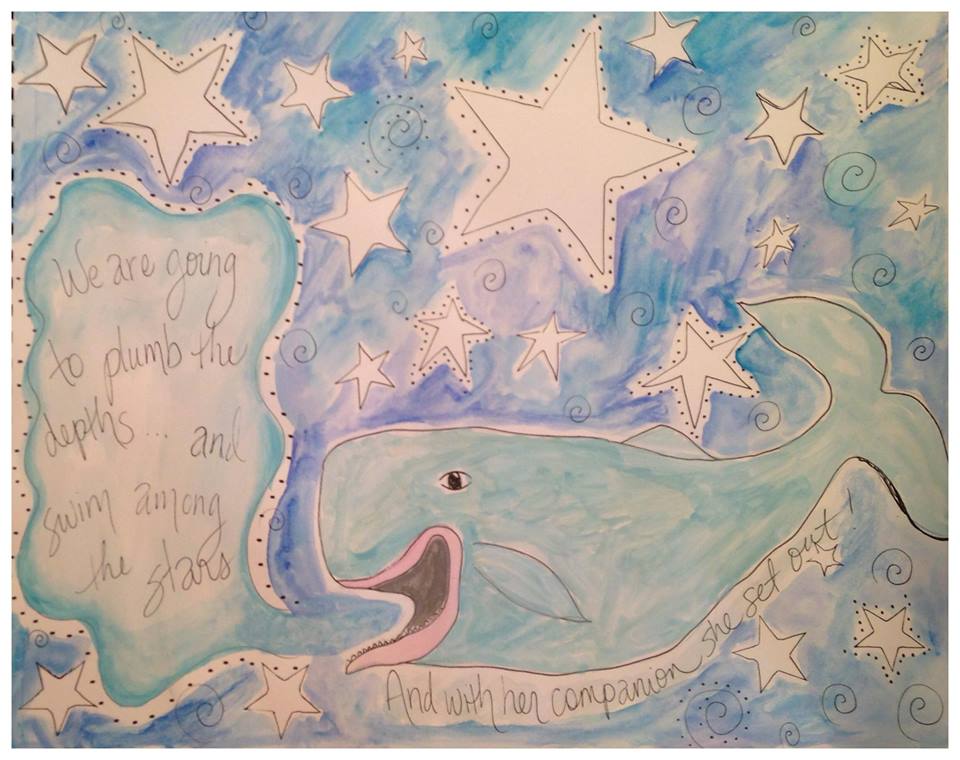 We are going
to plumb the
depths... and
swim among
the stars
And with her companion she set out!